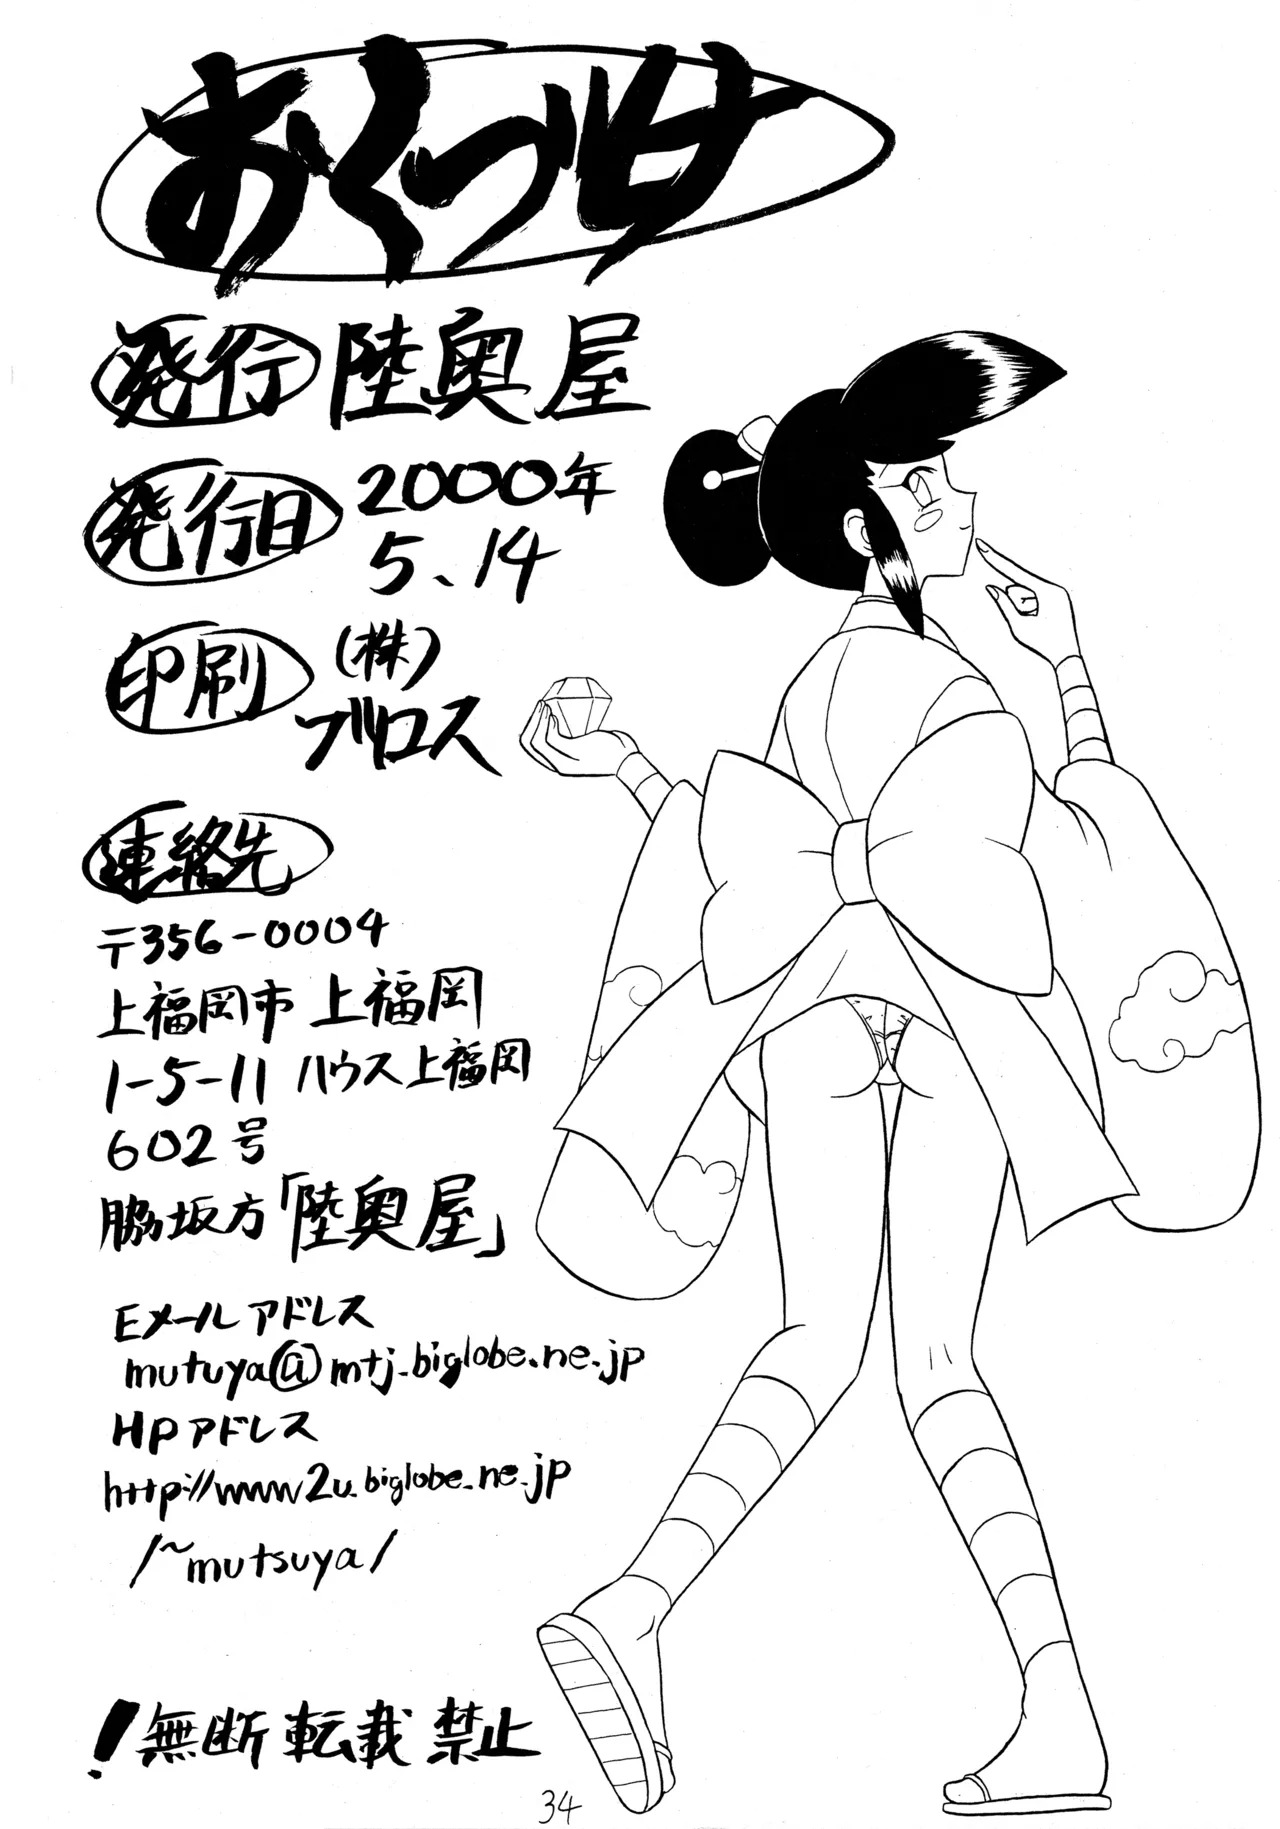 おくづけ
発行 陸奥屋
発行日 2000年
5.14
印刷 (株)
ブリロス
連絡先
〒356-0004
上福岡市 上福岡
1-5-11 ハウス上福岡
602号
脇坂方「陸奥屋」
Eメールアドレス
mutuya@mtj.biglobe.ne.jp
HPアドレス
http://www2u.biglobe.ne.jp
/~mutsuya/
!無断転載禁止
34